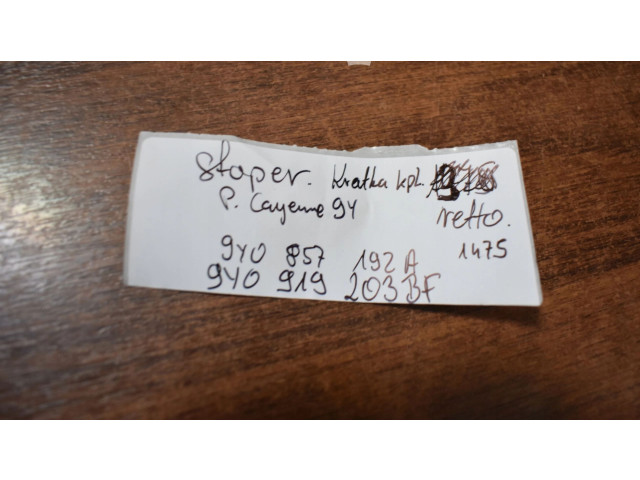 stoper. Kratka kpl.
P. Cayenne 9Y netto.
9Y0 857 192 A 1475
9Y0 919 203 BF